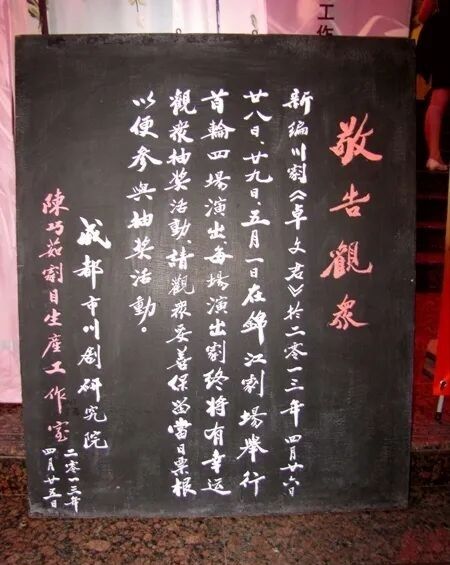 敬告觀眾
新编川劇《卓文君》於二零一三年四月廿六日
廿八日、廿九日、五月一日在錦江劇場舉行
首輪四場演出每場演出劇终將有幸运
觀眾抽奖活動請觀眾妥善保留當日票根
以便参與抽奖活動。
成都市川剧研究院
陳巧茹劇目生産工作室
二零一三年
四月廿五日
工作